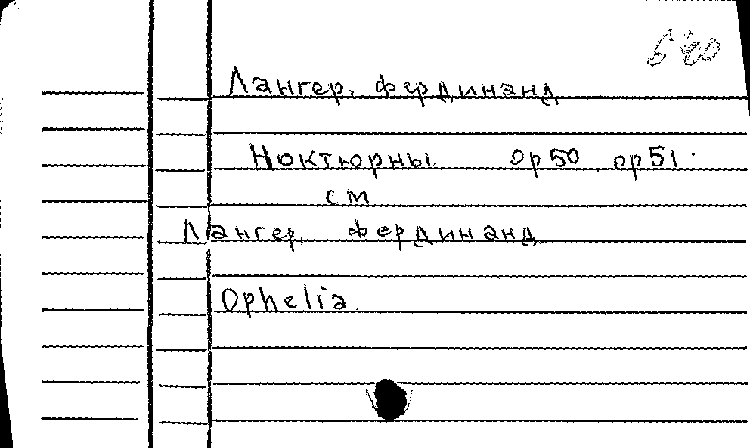 Лангер, Фердинанд
Ноктюрны. op50, op51.
см
Лангер, Фердинанд
Ophelia.